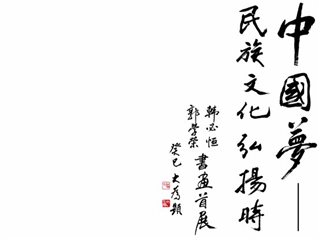 中國夢——
民族文化弘揚時
韩必恒
郭学荣
書畫首展
癸巳 大为題